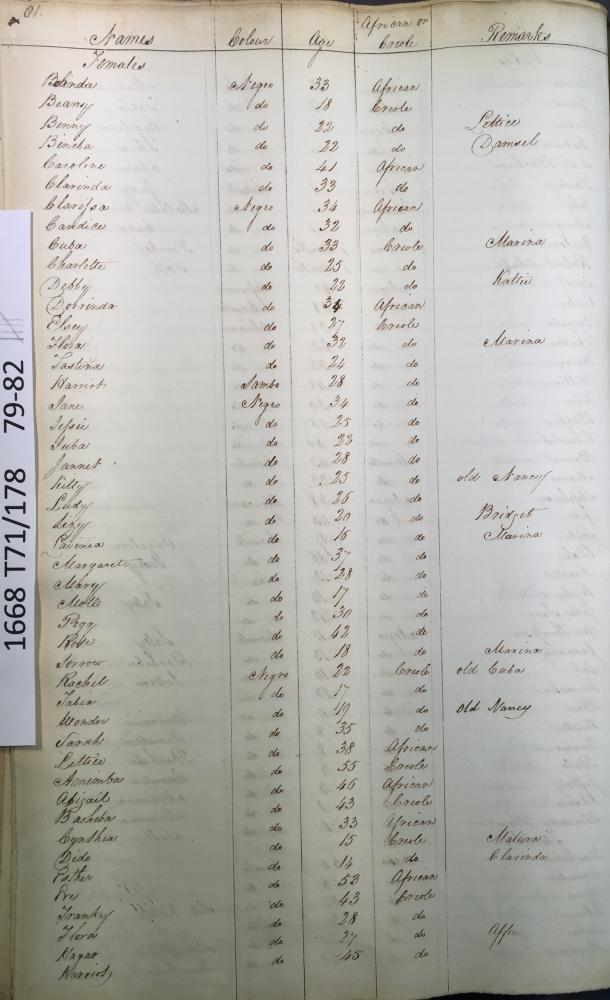 81.
Names Colour Age African or Creole Remarks
Females
Belinda Negro 33 African
Beany do 18 Creole
Benny do 22 do Lettice
Bineba do 22 do Damsel
Caroline do 41 African
Clarinda do 33 do
Clarissa Negro 34 African
Candice do 32 do
Cuba do 33 Creole Marina
Charlotte do 25 do
Debby do 22 do Kattie
Dorrinda do 34 African
Elsey do 27 Creole
Flora do 32 do Marina
Fastina do 24 do
Harriot Sambo 28 do
Jane Negro 34 do
Jessie do 25 do
Juba do 22 do
Jannet do 28 do
Kitty do 25 do old Nancy
Ludy do 26 do
Lizy do 20 do Bridget
Lavinia do 15 do Marina
Margaret do 37 do
Mary do 28 do
Molly do 17 do
Pegg do 30 do
Rose do 42 do
Sorrow do 18 do Marina
Rachel Negro 22 Creole old Cuba
Tabia do 17 do
Wonder do 19 do old Nancy
Sarah do 35 do
Lettice do 38 African
Amimba do 55 Creole
Abigail do 46 African
Basheba do 43 Creole
Cynthia do 33 African
Dido do 15 Creole Matura
Esther do 14 do Clarinda
Eve do 53 African
Franky do 43 Creole
Flora do 28 do
Hagar do 27 do Affe
Harriot do 45 do
1668 T71/178 79-82